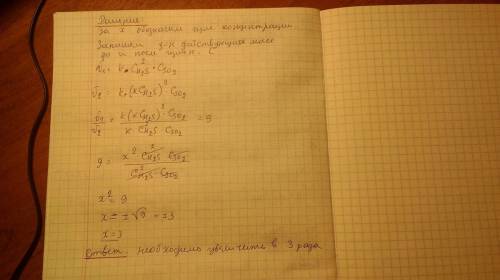 Решение:
За x обозначим изм концентрации
Запишем з-н действующих масс
до и после изм.
V₁ = k · C²H₂S · CSO₂
V₂ = k · (xCH₂S)² · CSO₂
V₂/V₁ = k(xCH₂S)² · CSO₂ / k C²H₂S CSO₂ = 9
9 = x² C²H₂S CSO₂ / C²H₂S · CSO₂
x² = 9
x = ± √9 = ±3
x = 3
Ответ: необходимо увеличить в 3 раза